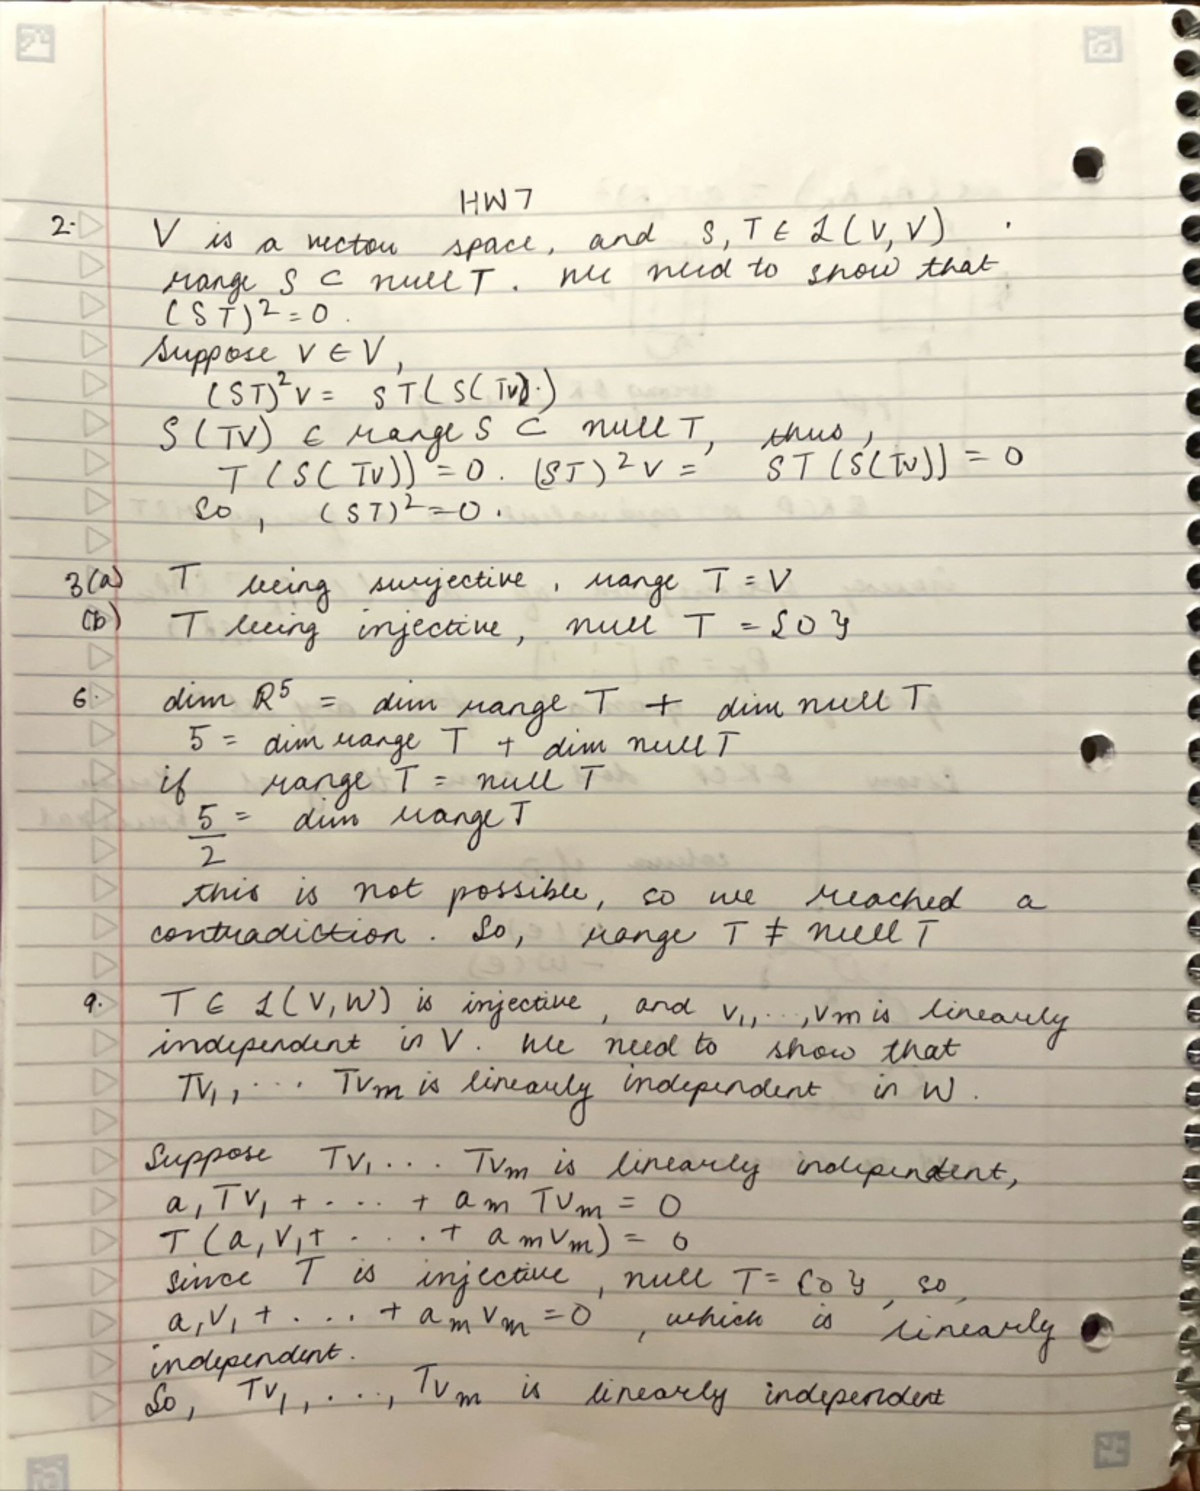 HW7
2. V is a vector space, and S, T ∈ L(V, V)
range S ⊂ null T. We need to show that
(ST)² = 0.
Suppose v ∈ V,
(ST)²v = ST(S(Tv))
S(Tv) ∈ range S ⊂ null T, thus,
T(S(Tv)) = 0. (ST)²v = ST(S(Tv)) = 0
So, (ST)² = 0.
3(a) T being surjective, range T = V
(b) T being injective, null T = {0}
6. dim R⁵ = dim range T + dim null T
5 = dim range T + dim null T
if range T = null T
5/2 = dim range T
this is not possible, so we reached a
contradiction. So, range T ≠ null T
9. T ∈ L(V, W) is injective, and v₁, ..., vm is linearly
independent in V. We need to show that
Tv₁, ... Tvm is linearly independent in W.
Suppose Tv₁ ... Tvm is linearly independent,
a₁Tv₁ + .... + am Tvm = 0
T(a₁v₁ + .... + amvm) = 0
since T is injective, null T = {0}, so,
a₁v₁ + .... + amvm = 0, which is linearly
independent.
So, Tv₁, ..., Tvm is linearly independent